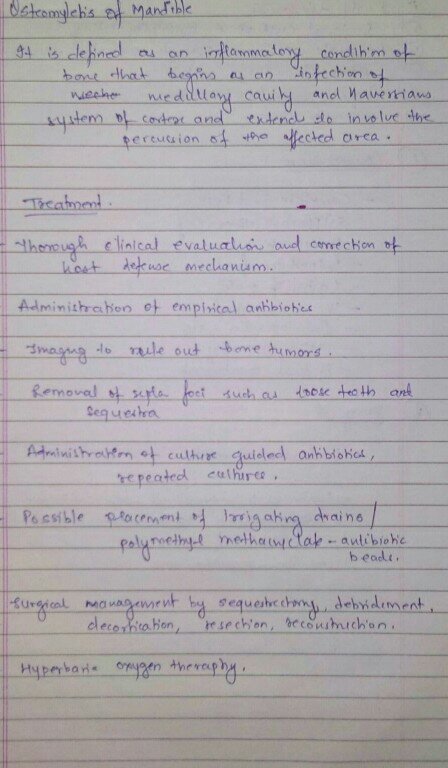 Osteomyletis of Mandible
It is defined as an inflammatory condition of
bone that begins as an infection of
medullary cavity and Haversians
system of cortex and extends to involve the
percussion of the affected area.
Treatment.
- Thorough clinical evaluation and correction of
host defense mechanism.
Administration of empirical antibiotics
- Imaging to rule out bone tumors.
- Removal of foci such as loose teeth and
sequestra
- Administration of culture guided antibiotics,
repeated cultures.
- Possible placement of Irrigating drains /
polymethyl methacrylate - antibiotic
beads.
Surgical management by sequestrectomy, debridement,
decortication, resection, reconstruction.
Hyperbaric oxygen theraphy.